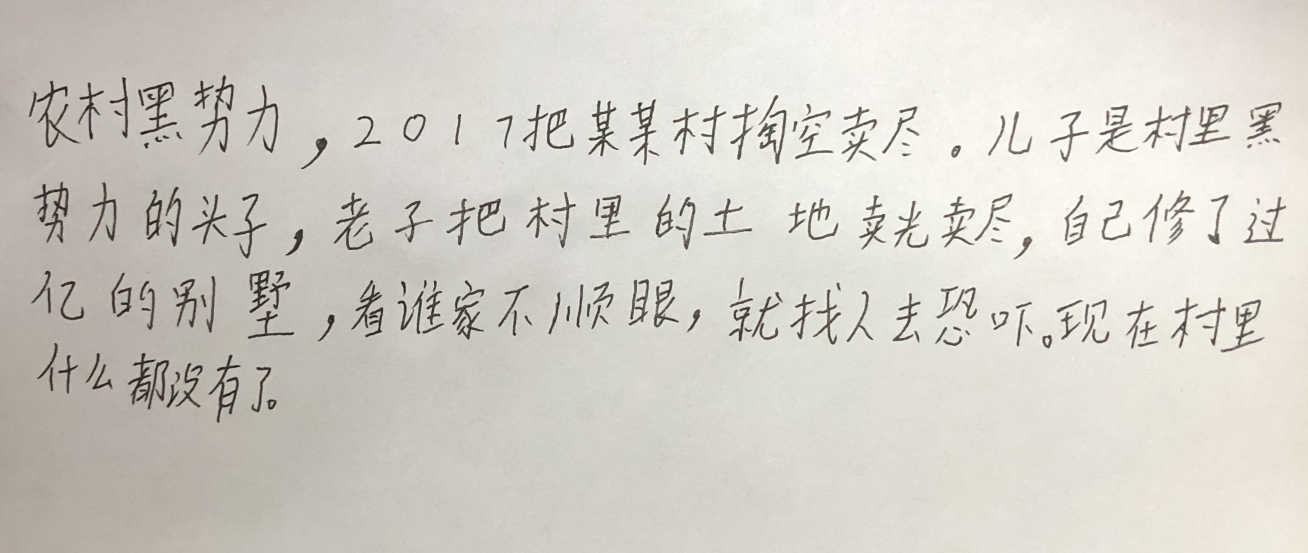 农村黑势力，2017把某某村掏空卖尽。儿子是村里黑
势力的头子，老子把村里的土地卖光卖尽，自己修了过
亿的别墅，看谁家不顺眼，就找人去恐吓。现在村里
什么都没有了。